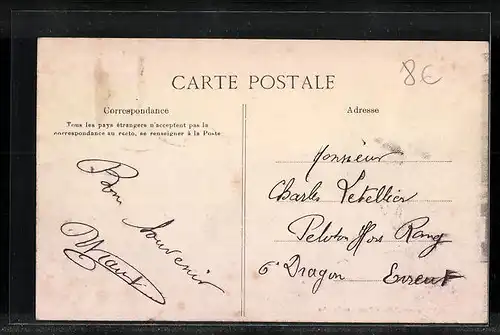 8€
CARTE POSTALE
Correspondance
Tous les pays étrangers n'acceptent pas la
correspondance au recto, se renseigner à la Poste
Bon Souvenir
Adresse
Monsieur
Charles Letellier
Peloton Hors Rang
6e Dragon Evreux